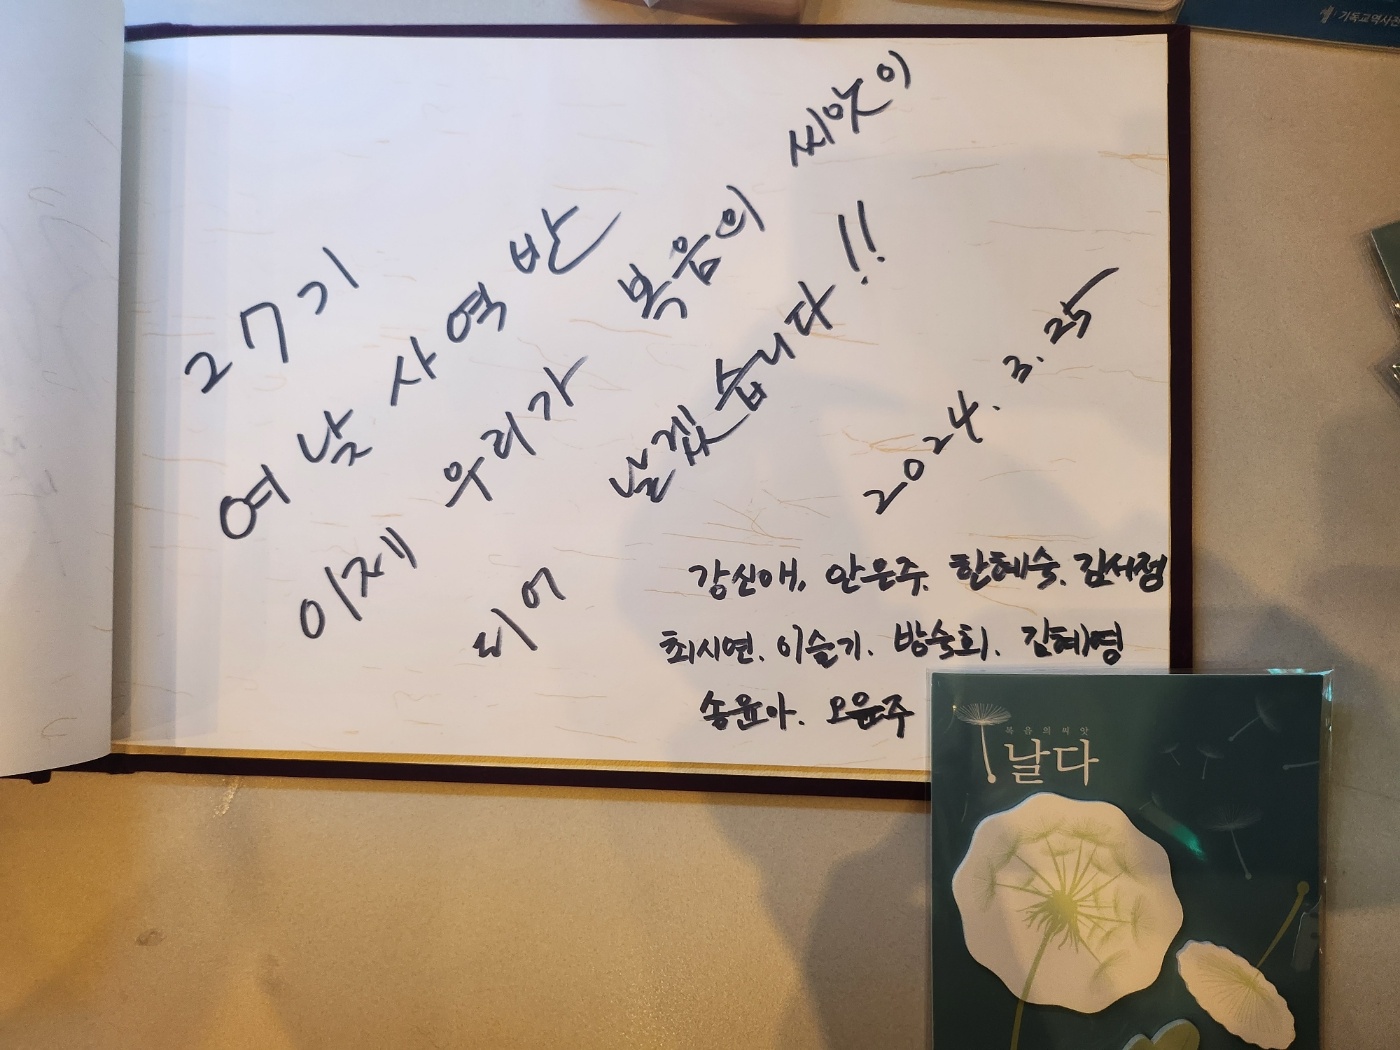 27기
여날 사역반
이제 우리가 복음의 씨앗이
되어 날겠습니다!!
2024. 3. 25
강신애, 안은주, 한혜숙, 김서정
최시연, 이슬기, 방숙희, 김혜영
송윤아, 오윤주
복음의씨앗
날다
기독교역사관